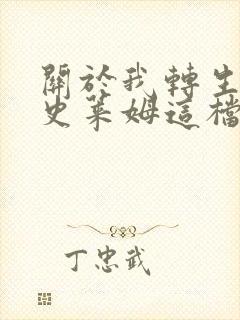 關於我轉生
史萊姆這檔
丁忠武